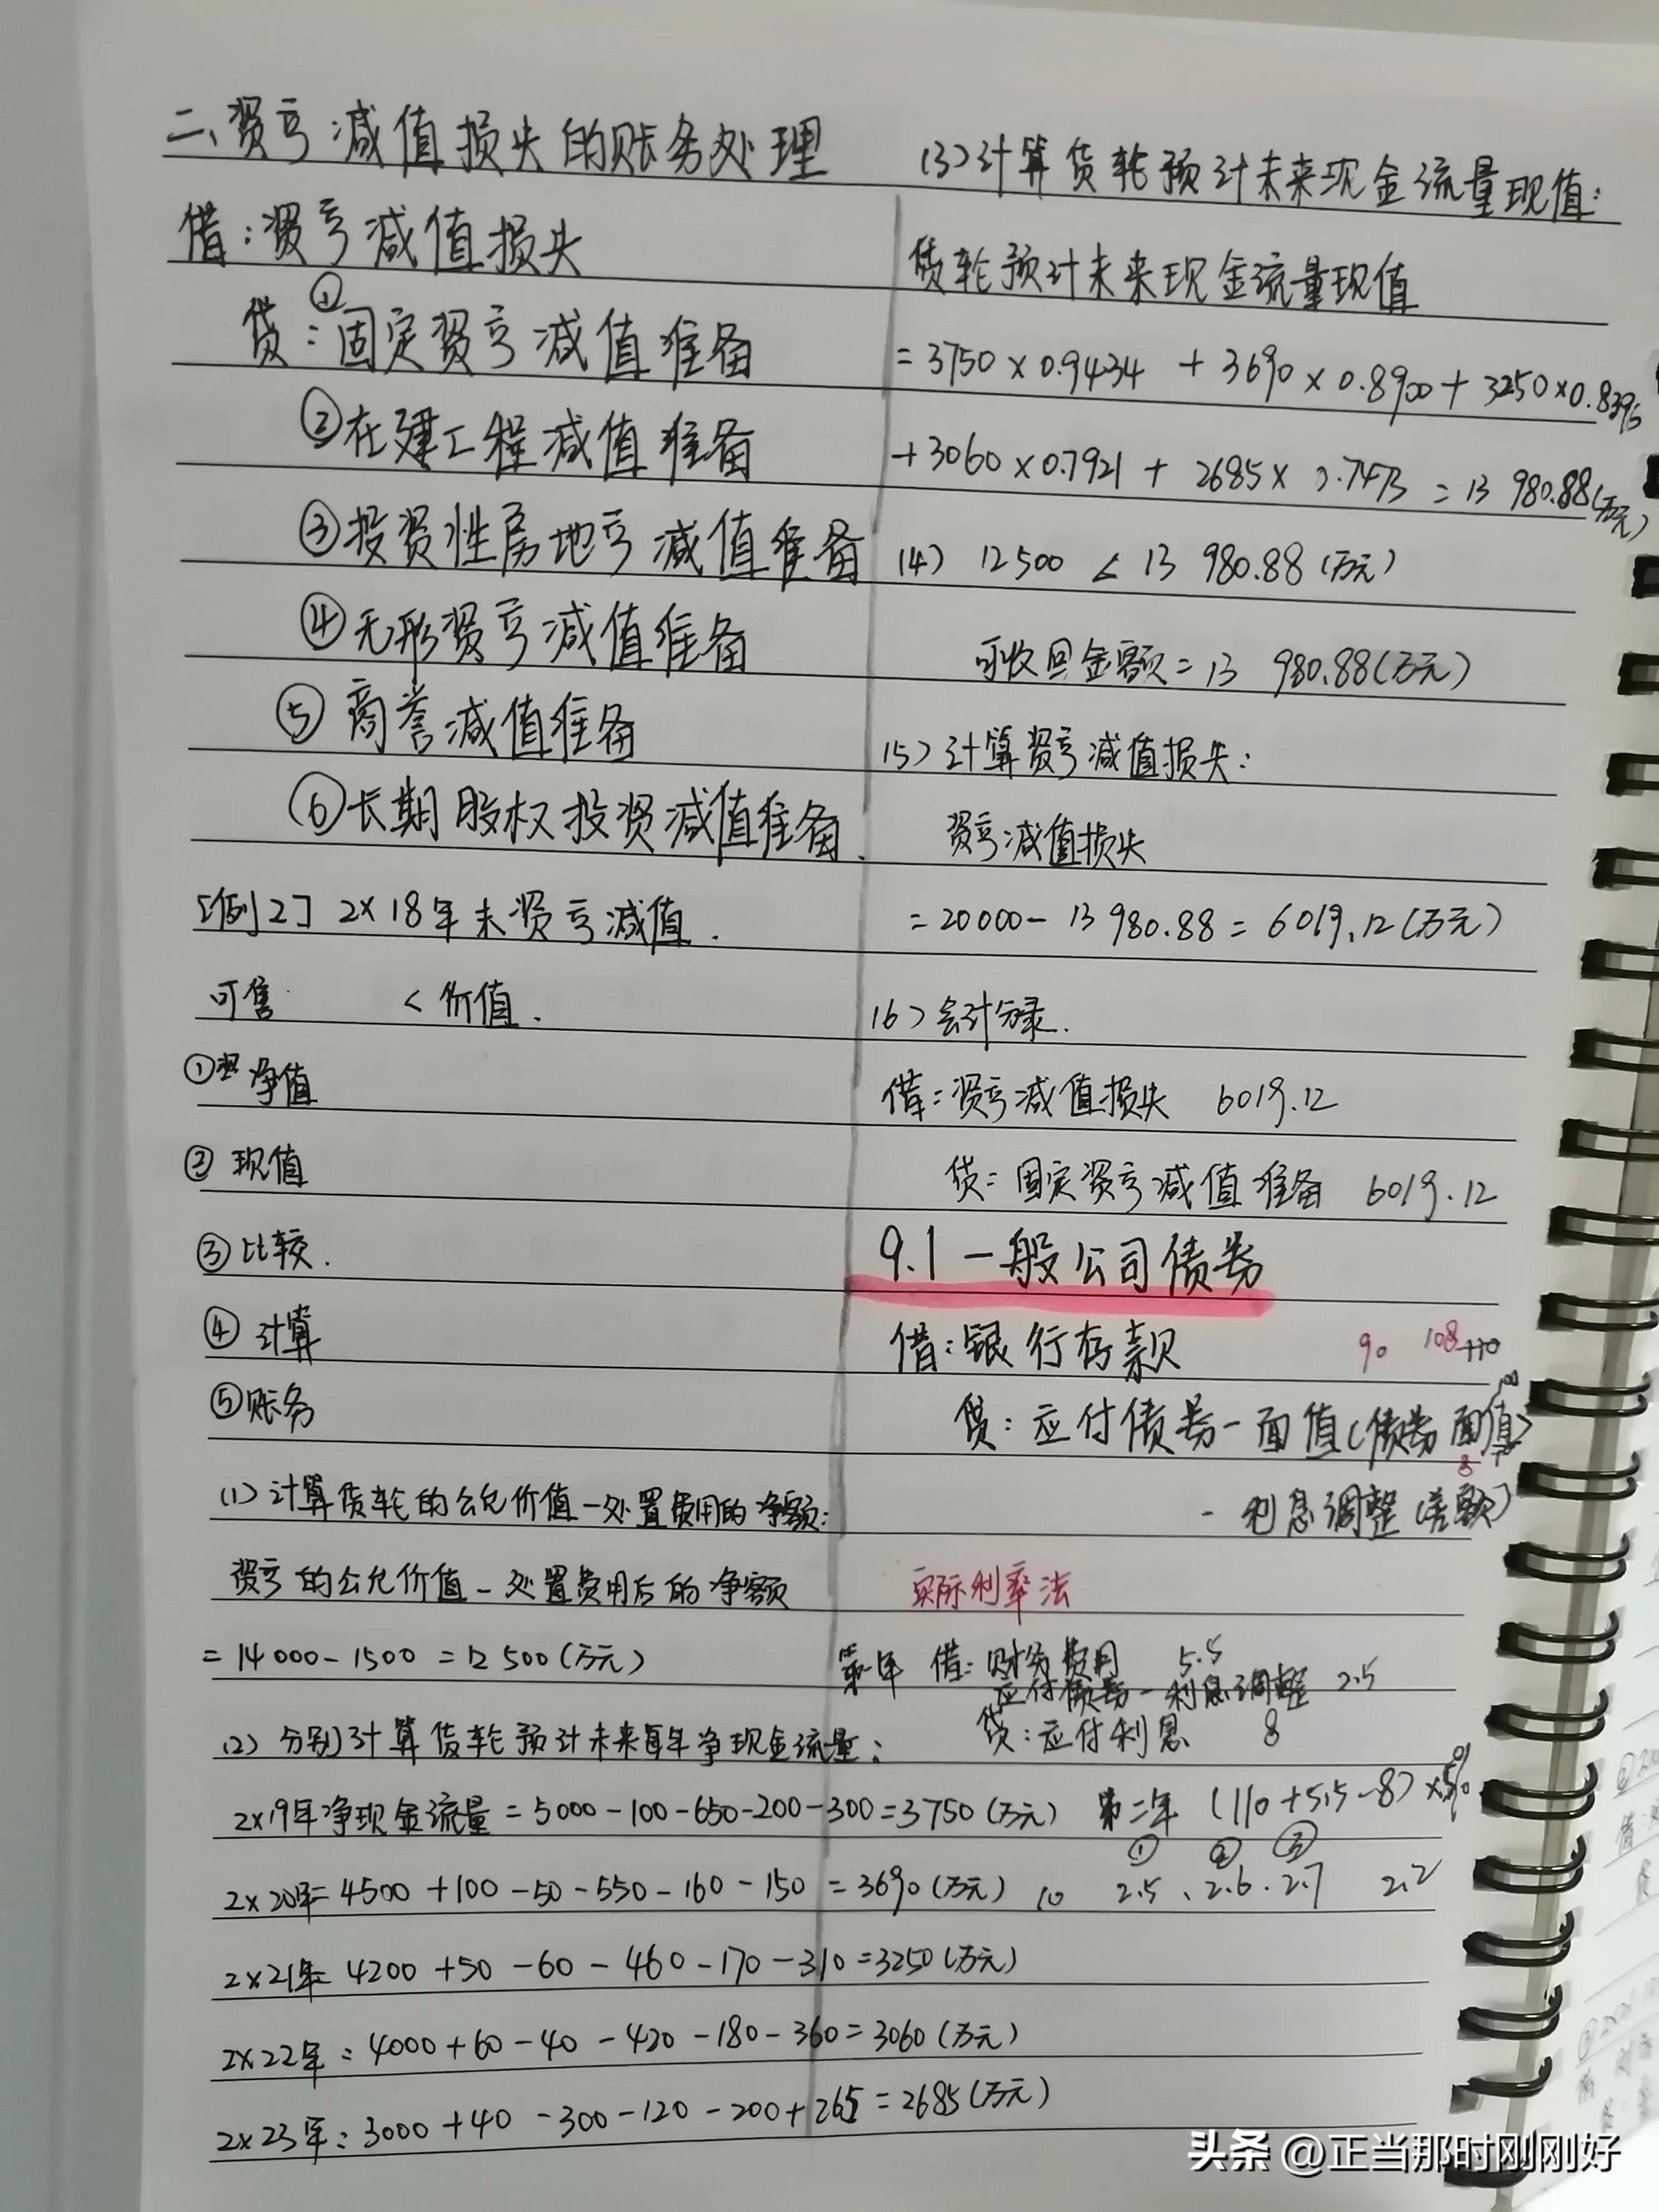 二、资产减值损失的账务处理
借:资产减值损失
贷:①固定资产减值准备
②在建工程减值准备
③投资性房地产减值准备
④无形资产减值准备
⑤商誉减值准备
⑥长期股权投资减值准备.
[例2] 2×18年末资产减值.
可售 <价值.
① 净值
② 现值
③比较.
④ 计算
⑤账务
(1)计算货轮的公允价值-处置费用的净额:
资产的公允价值-处置费用后的净额
=14000-1500=12500(万元)
(2)分别计算货轮预计未来每年净现金流量:
2×19年净现金流量=5000-100-650-200-300=3750(万元)
2×20年=4500+100-50-550-160-150=3690(万元)
2×21年=4200+50-60-460-170-310=3250(万元)
2×22年:4000+60-40-420-180-360=3060(万元)
2×23年:3000+40-300-120-200+265=2685(万元)
(3)计算货轮预计未来现金流量现值:
货轮预计未来现金流量现值
=3750×0.9434+3690×0.8900+3250×0.8396
+3060×0.7921+2685×0.7473=13 980.88(万元)
(4) 12500<13 980.88(万元)
可收回金额=13 980.88(万元)
(5)计算资产减值损失:
资产减值损失
=20000-13980.88=6019.12(万元)
(6)会计分录.
借:资产减值损失 6019.12
贷:固定资产减值准备 6019.12
9.1 一般公司债券
借:银行存款 90 108 110
贷:应付债券-面值(债券面值)
8
-利息调整(差额)
实际利率法
第一年 借:财务费用 5.5
应付债券-利息调整 2.5
贷:应付利息 8
第二年 (110+5.5-8)×5%
① ② ③
10 2.5、2.6.2.7 2.2
头条 @正当那时刚刚好